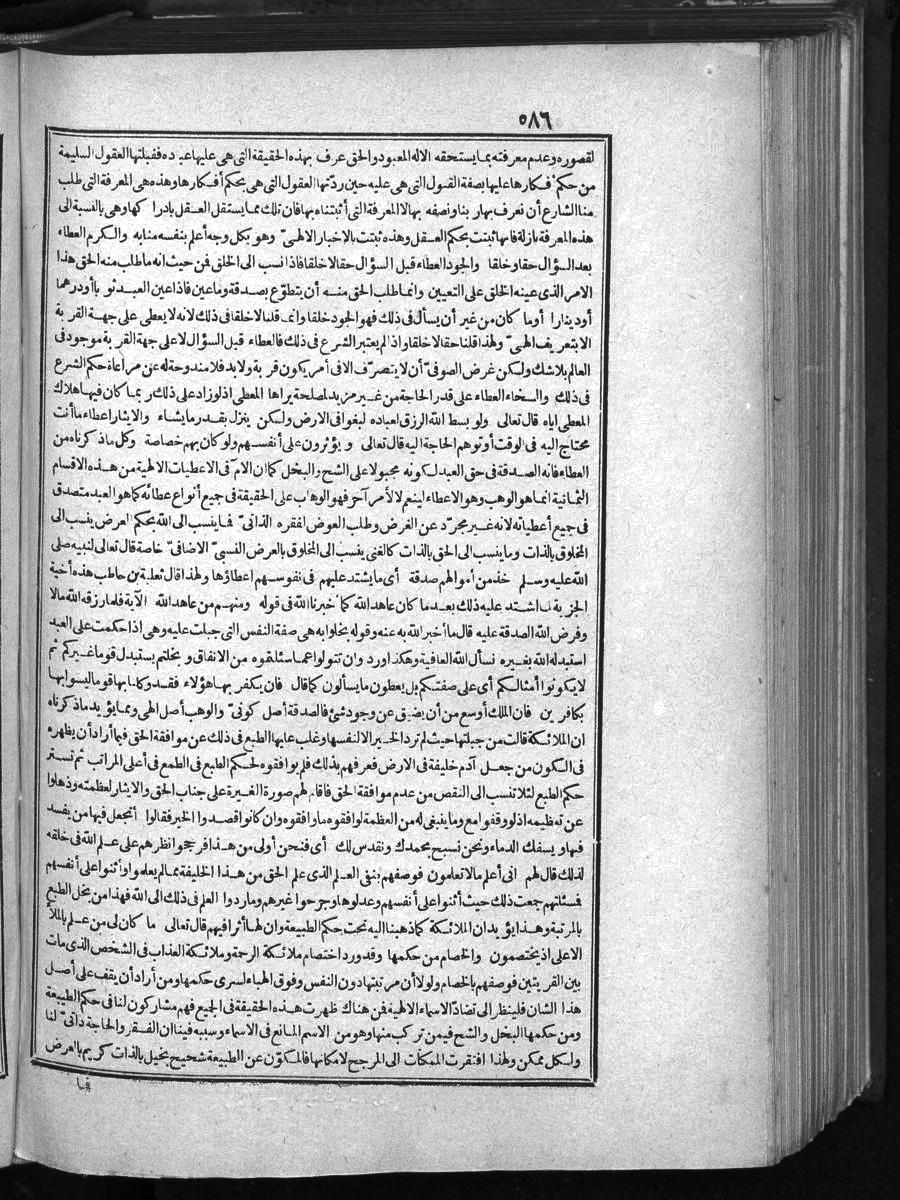 ٥٨٦
لقصوره وعدم معرفته بما يستحقه الاله المعبود والحق عرف بهذه الحقيقة التى هى عليها عباده فقبلتها العقول السليمة
من حكم أفكارها عليها بصفة القبول التى هى عليه حين ردّتها العقول التى هى بحكم أفكارها وهذه هى المعرفة التى طلب
منا الشارع أن نعرف بها ربنا ونصفه بها لا المعرفة التى أثبتناه بها فان تلك مما يستقل العقل بادراكها وهى بالنسبة الى
هذه المعرفة نازلة فانها ثبتت بحكم العقل وهذه ثبتت بالاخبار الالهىّ وهو بكل وجه أعلم بنفسه منا به والكرم العطاء
بعد السؤال حقا وخلقا والجود العطاء قبل السؤال حقا لا خلقا فاذا نسب الى الخلق فمن حيث انه ما طلب منه الحق هذا
الامر الذى عينه الخلق على التعيين وانما طلب الحق منه أن يتطوّع بصدقة وما عين فاذا عين العبد ثوبا أو درهما
أو دينارا أو ما كان من غير أن يسأل فى ذلك فهو الجود خلقا وانما قلنا لا خلقا فى ذلك لانه لا يعطى على جهة القربة
الا بتعريف الهىّ ولهذا قلنا حقا لا خلقا واذا لم يعتبر الشرع فى ذلك فالعطاء قبل السؤال لا على جهة القربة موجود فى
العالم بلا شك ولكن غرض الصوفىّ أن لا يتصرّف الا فى أمر يكون قربة ولا بد فلا مندوحة له عن مراعاة حكم الشرع
فى ذلك والسخاء العطاء على قدر الحاجة من غير مزيد لمصلحة يراها المعطى اذ لو زاد على ذلك ربما كان فيها هلاك
المعطى اياه قال تعالى ولو بسط الله الرزق لعباده لبغوا فى الارض ولكن ينزل بقدر ما يشاء والايثار اعطاء ما أنت
محتاج اليه فى الوقت أو توهم الحاجة اليه قال تعالى ويؤثرون على أنفسهم ولو كان بهم خصاصة وكل ما ذكرناه من
العطاء فانه الصدقة فى حق العبد لكونه مجبولا على الشح والبخل كما ان الامر فى الاعطيات الالهية من هذه الاقسام
الثمانية انما هو الوهب وهو الاعطاء لينعم لا لأمر آخر فهو الوهاب على الحقيقة فى جميع أنواع عطائه كما هو العبد متصدق
فى جميع أعطياته لانه غير مجرّد عن الغرض وطلب العوض لفقره الذاتىّ فما ينسب الى الله بحكم العرض ينسب الى
المخلوق بالذات وما ينسب الى الحق بالذات كالغنى ينسب الى المخلوق بالعرض النسبىّ الاضافىّ خاصة قال تعالى لنبيه صلى
الله عليه وسلم خذ من أموالهم صدقة أى ما يشتد عليهم فى نفوسهم اعطاؤها ولهذا قال ثعلبة بن حاطب هذه أخية
الجزية لما اشتد عليه ذلك بعد ما كان عاهد الله كما أخبرنا الله فى قوله ومنهم من عاهد الله الآية فلما رزقه الله مالا
وفرض الله الصدقة عليه قال ما أخبر الله به عنه وقوله بخلوا به هى صفة النفس التى جبلت عليه وهى اذا حكمت على العبد
استبدله الله بغيره نسأل الله العافية وهكذا ورد وان تتولوا عما سئلتموه من الانفاق وبخلتم يستبدل قوما غيركم ثم
لا يكونوا أمثالكم أى على صفتكم بل يعطون ما يسألون كما قال فان يكفر بها هؤلاء فقد وكلنا بها قوما ليسوا بها
بكافرين فان الملك أوسع من أن يضيق عن وجود شئ فالصدقة أصل كونىّ والوهب أصل الهى ومما يؤيد ما ذكرناه
ان الملائكة قالت من جبلتها حيث لم ترد الخير الا لنفسها وغلب عليها الطبع فى ذلك عن موافقة الحق فيما أراد أن يظهره
فى الكون من جعل آدم خليفة فى الارض فعرفهم بذلك فلم يوافقوه لحكم الطبع فى الطمع فى أعلى المراتب ثم تستر
حكم الطبع لئلا تنسب الى النقص من عدم موافقة الحق فاقام لهم صورة الغيرة على جناب الحق والايثار لعظمته وذهلوا
عن تعظيمه اذ لو وقفوا مع وما ينبغى له من العظمة لوافقوه ما وافقوه وان كانوا قصدوا الخير فقالوا أتجعل فيها من يفسد
فيها ويسفك الدماء ونحن نسبح بحمدك ونقدس لك أى فنحن أولى من هذا فرجحوا نظرهم على علم الله فى خلقه
لذلك قال لهم انى أعلم ما لا تعلمون فوصفهم بنفى العلم الذى علم الحق من هذا الخليفة مما لم يعلموا وأثنوا على أنفسهم
فسئلتهم جمعت ذلك حيث أثنوا على أنفسهم وعدلوها وجرحوا غيرهم وما ردوا العلم فى ذلك الى الله فهذا من بخل الطبع
بالمرتبة وهذا يؤيد ان الملائكة كما ذهبنا اليه تحت حكم الطبيعة وان لها أثرا فيهم قال تعالى ما كان لى من علم بالملأ
الاعلى اذ يختصمون والخصام من حكمها وقد ورد اختصام ملائكة الرحمة وملائكة العذاب فى الشخص الذى مات
بين القريتين فوصفهم بالخصام ولولا أن مرتبتها دون النفس وفوق الهباء لسرى حكمها ومن أراد أن يقف على أصل
هذا الشان فلينظر الى تضادّ الاسماء الالهية فمن هناك ظهرت هذه الحقيقة فى الجميع فهم مشاركون لنا فى حكم الطبيعة
ومن حكمها البخل والشح فيمن تركب منها وهو من الاسم المانع فى الاسماء وسببه فينا ان الفقر والحاجة ذاتىّ لنا
ولكل ممكن ولهذا افتقرت الممكنات الى المرجح لامكانها فالمكوّن عن الطبيعة شحيح بخيل بالذات كريم بالعرض
فما